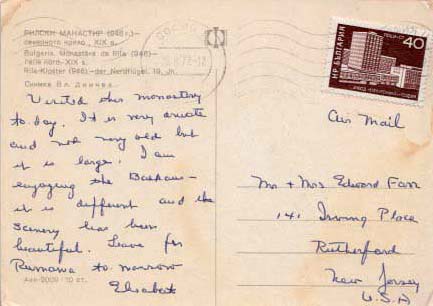 РИЛСКИ МАНАСТИР (946 г.) —
северното крило, XIX в.
Bulgaria. Monastère de Rila (946) —
l'aile nord, XIX s.
Rila-Kloster (946) — der Nordflügel, 19. Jh.
Снимка Вл. Дмичев
Visited this monastery
to-day. It is very ornate
and not very old but
it is large. I am
enjoying the Balkans —
it is different and the
scenery has been
beautiful. Leave for
Rumania to-morrow
Elisabeth
НР БЪЛГАРИЯ
40
Air Mail
Mr + Mrs Edward Farr
141 Irving Place
Rutherford
New Jersey
U.S.A